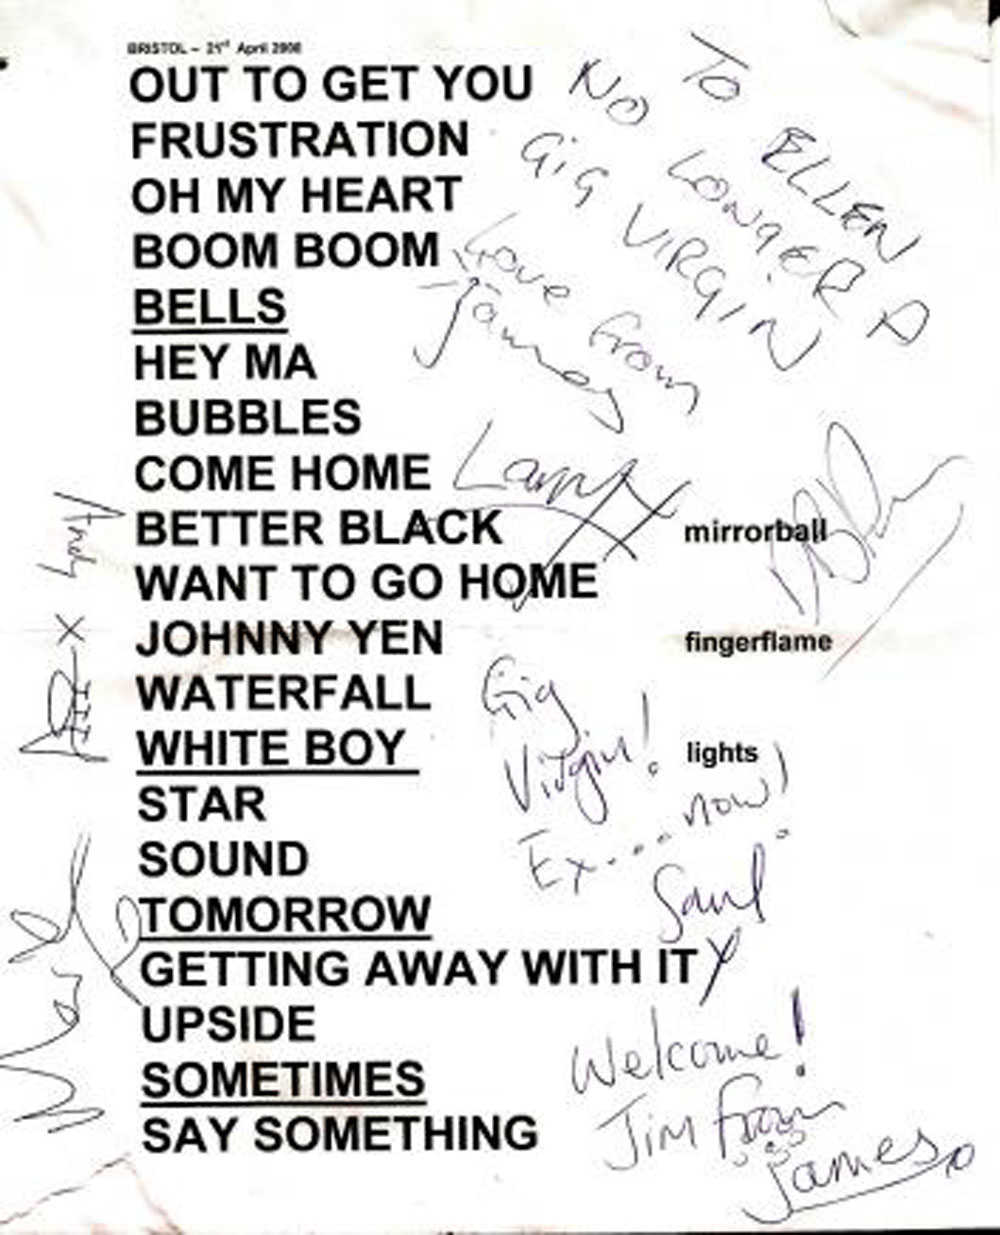 BRISTOL – 21st April 2008
OUT TO GET YOU
FRUSTRATION
OH MY HEART
BOOM BOOM
BELLS
HEY MA
BUBBLES
COME HOME
BETTER BLACK
mirrorball
WANT TO GO HOME
JOHNNY YEN
fingerflame
WATERFALL
WHITE BOY
lights
STAR
SOUND
TOMORROW
GETTING AWAY WITH IT
UPSIDE
SOMETIMES
SAY SOMETHING
TO ELLEN
NO LONGER A
GIG VIRGIN
Love from
James
Larry
Gig
Virgin!
Ex.... now!
Saul
X
Welcome!
Jim from
James
Andy
X
Mark